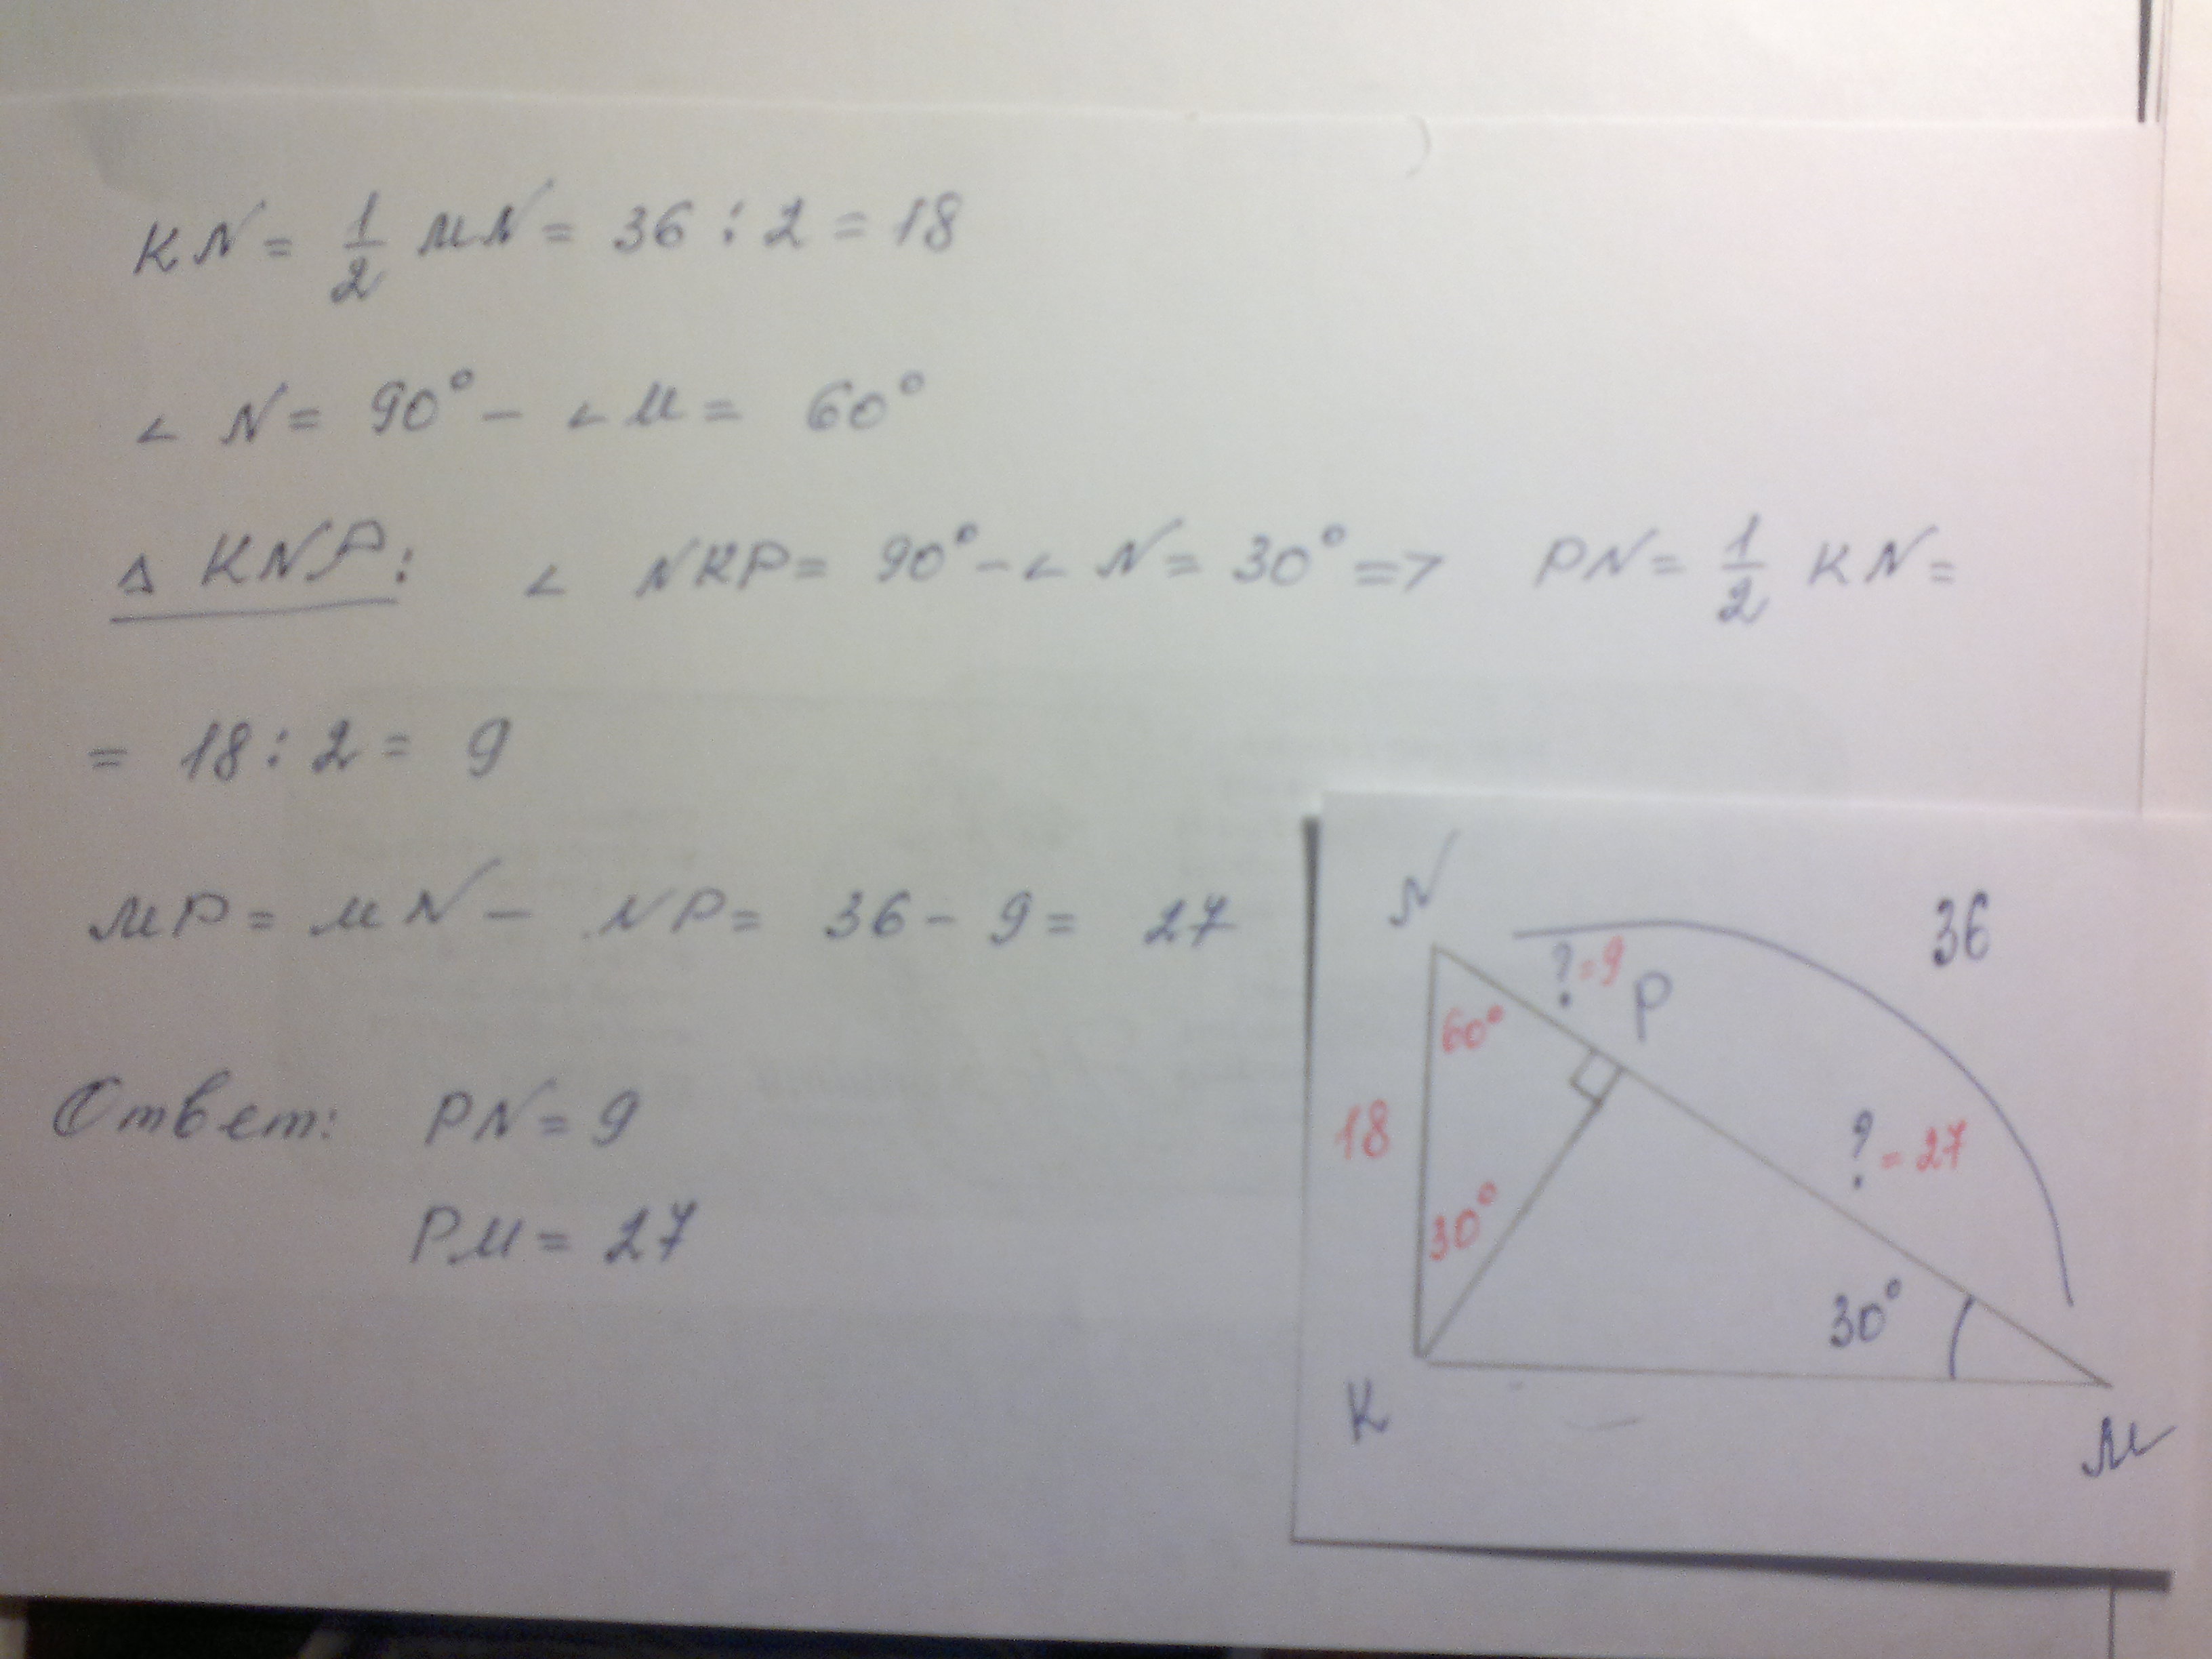 KN = 1/2 MN = 36 : 2 = 18
∠ N = 90° - ∠ M = 60°
Δ KNP: ∠ NKP = 90° - ∠ N = 30° => PN = 1/2 KN =
= 18 : 2 = 9
MP = MN - NP = 36 - 9 = 27
Ответ: PN = 9
PM = 27
N
36
? = 9
P
60°
18
? = 27
30°
30°
K
M